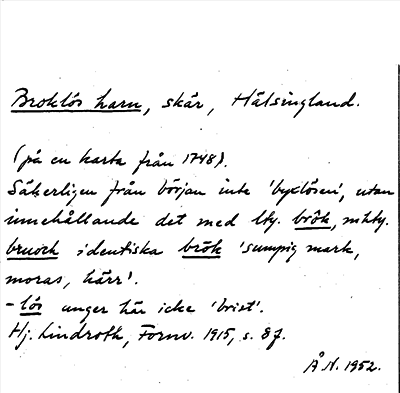 Broklös harn, skär, Hälsingland.
(på en karta från 1748).
Säkerligen från början inte 'byxlösen', utan
innehållande det med lty. brôk, mhty.
bruoch identiska brōk 'sumpig mark,
moras, kärr'.
-lös anger här icke 'brist'.
Hj. Lindroth, Fornv. 1915, s. 8f.
Å N. 1952.